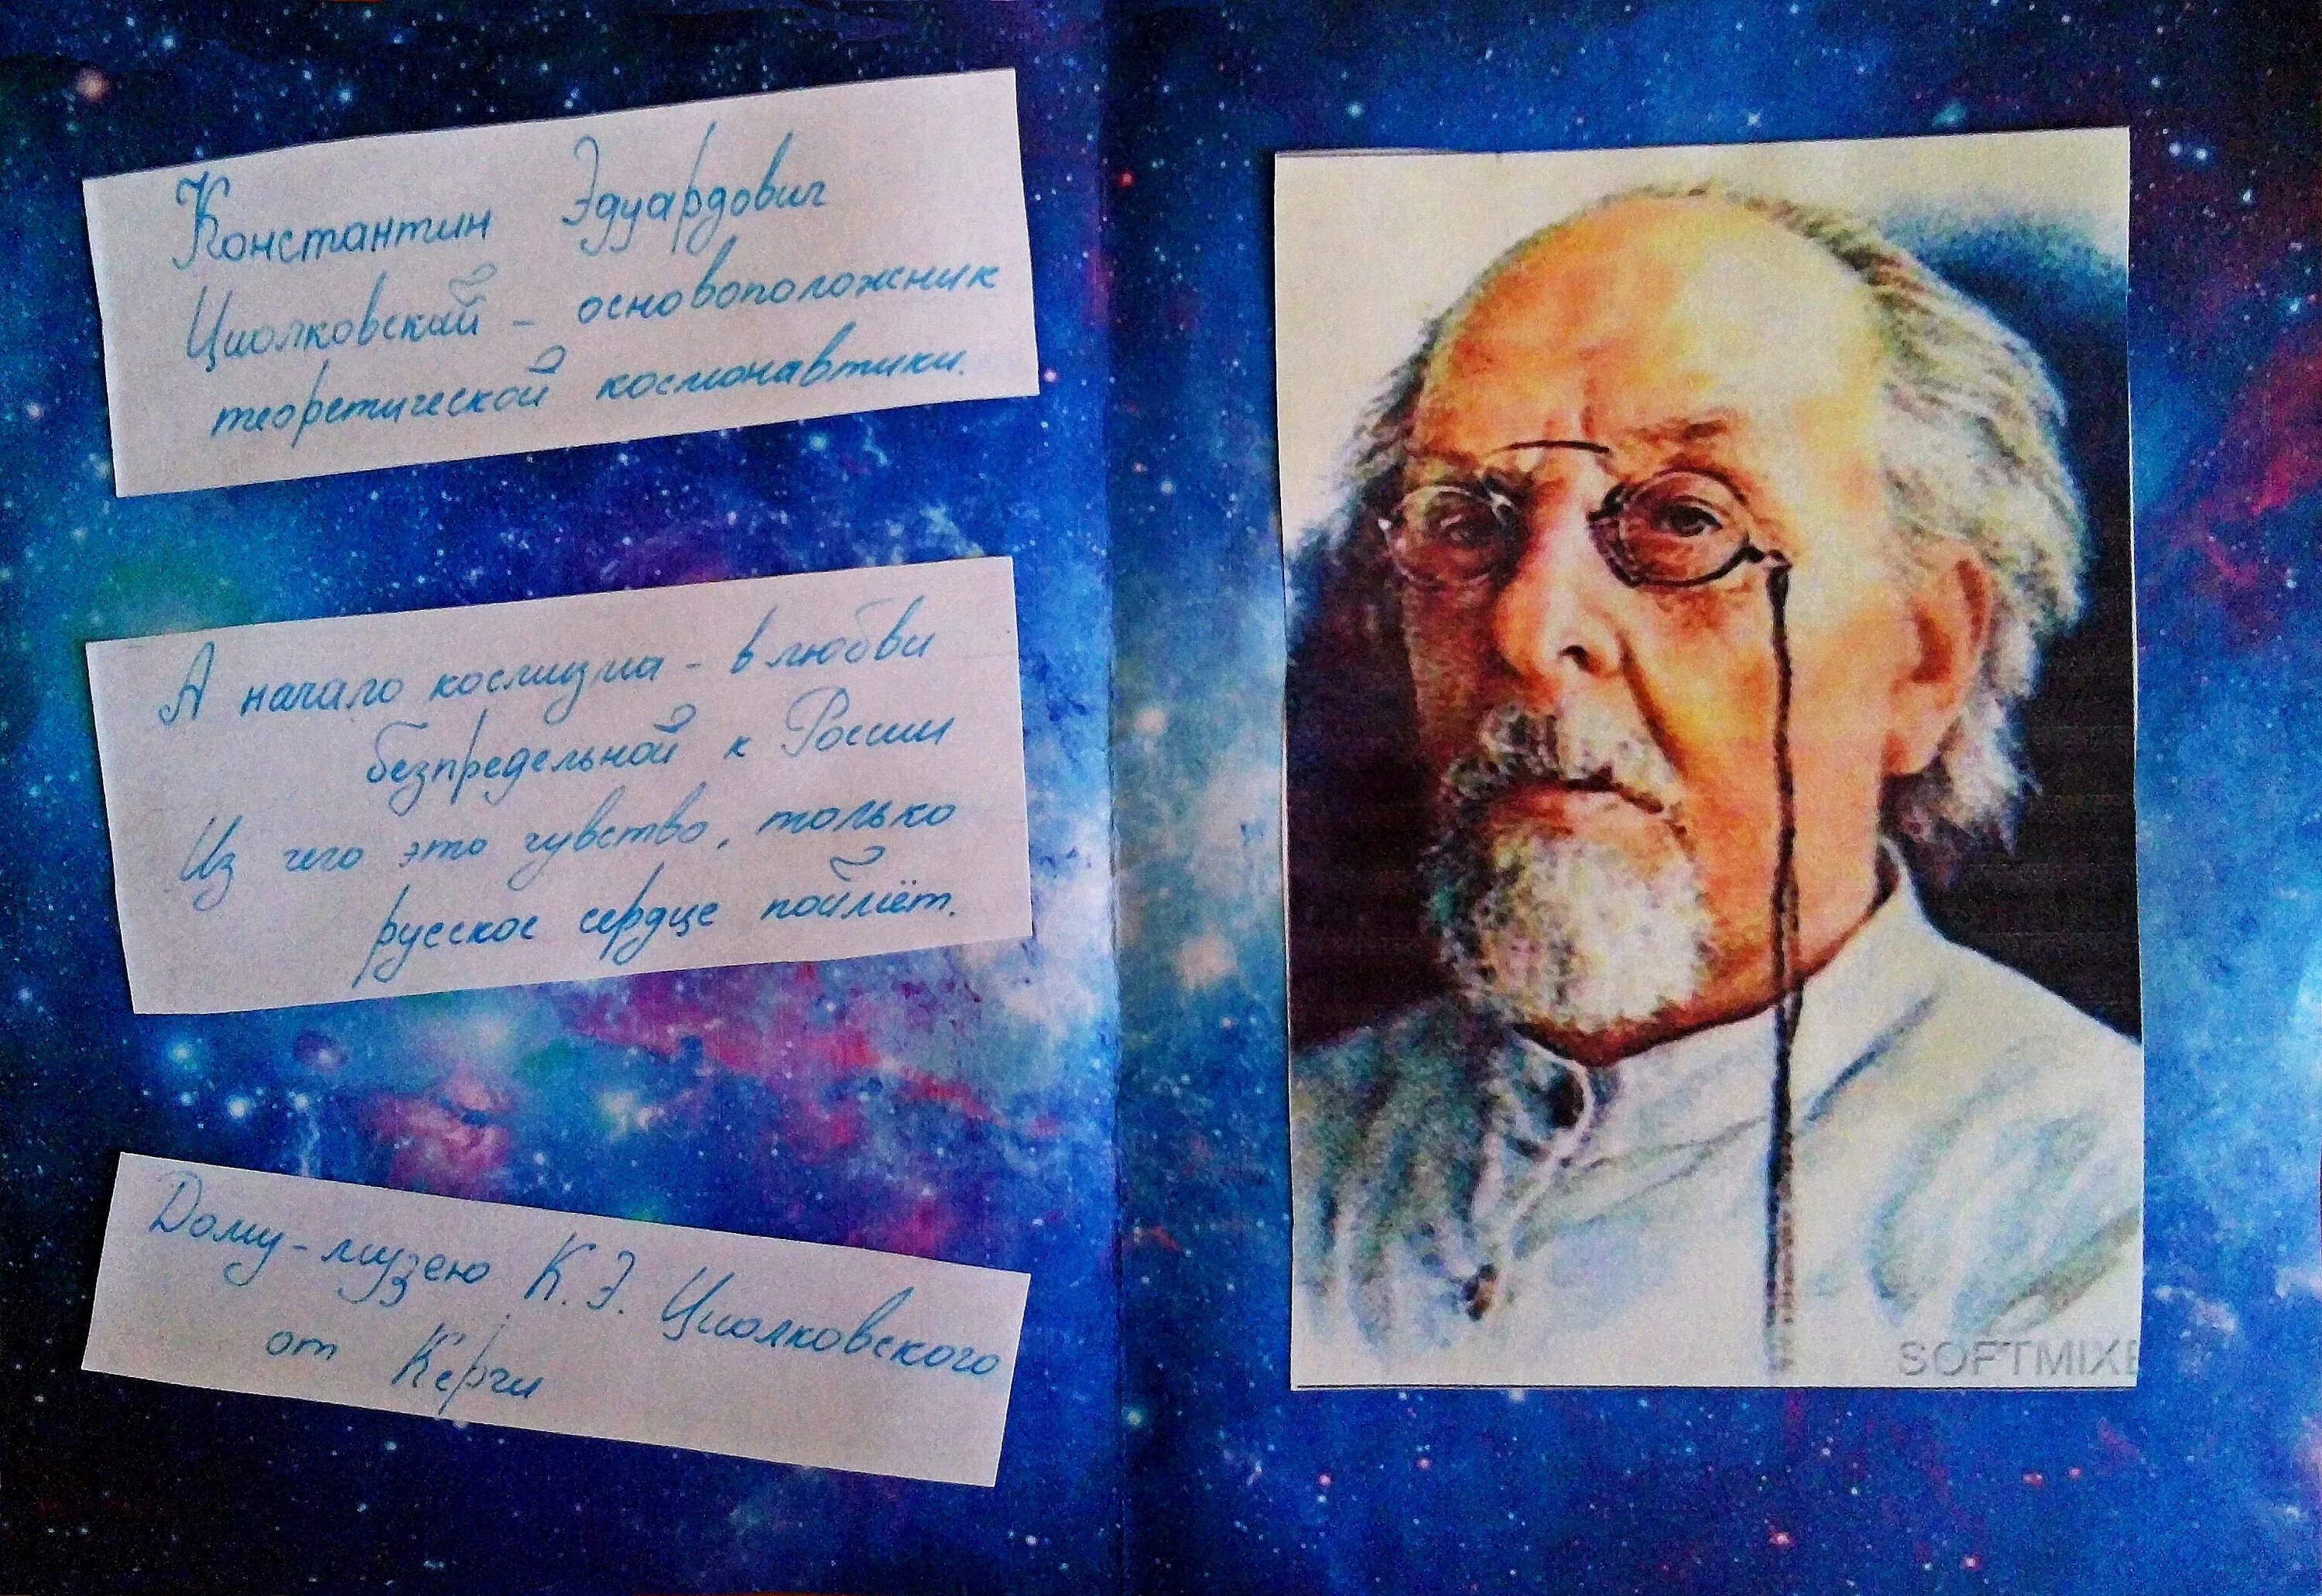 Константин Эдуардович
Циолковский - основоположник
теоретической космонавтики.
А начало космизма - в любви
безпредельной к России
Из чего это чувство, только
русское сердце поймёт.
Дому-музею К.Э. Циолковского
от Керчи
SOFTMIXE